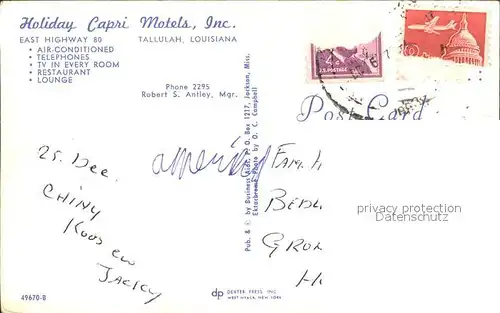 Holiday Capri Motels, Inc.
EAST HIGHWAY 80 TALLULAH, LOUISIANA
• AIR-CONDITIONED
• TELEPHONES
• TV IN EVERY ROOM
• RESTAURANT
• LOUNGE
Phone 2295
Robert S. Antley, Mgr.
4¢
U.S. POSTAGE
Post Card
by Business Aids, P. O. Box 1217, Jackson, Miss.
Ektachrome Photo by O. C. Campbell
25 Dec.
CHINY
Koos en
JACKY
FAM. H
BEDU
GRON
H
privacy protection
Datenschutz
49670-B
dp DEXTER PRESS, INC.
WEST NYACK, NEW YORK